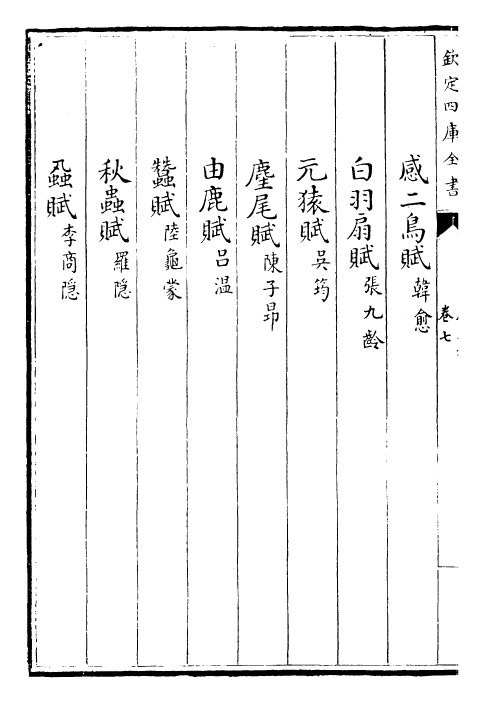 欽定四庫全書
卷七
感二鳥賦 韓愈
白羽扇賦 張九齡
元猿賦 吳筠
麈尾賦 陳子昂
由鹿賦 呂溫
蠶賦 陸龜蒙
秋蟲賦 羅隱
蝨賦 李商隱